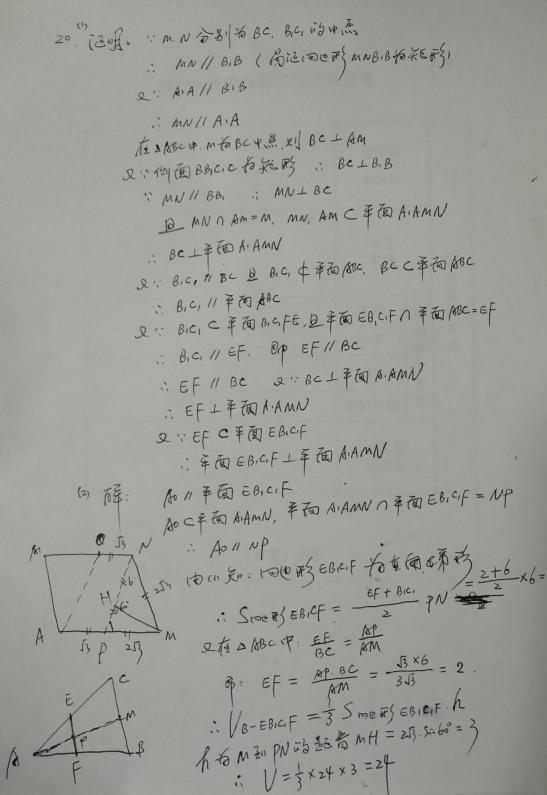 20. (1) 证明: ∵ M、N分别为BC, B₁C₁的中点
∴ MN // B₁B (易证四边形MNB₁B为矩形)
又∵ A₁A // B₁B
∴ MN // A₁A
在△ABC中, M为BC中点, 则 BC⊥AM
又∵侧面BB₁C₁C为矩形 ∴ BC⊥B₁B
∵ MN // BB₁ ∴ MN⊥BC
且 MN∩AM=M, MN, AM⊂平面A₁AMN
∴ BC⊥平面A₁AMN
又∵ B₁C₁ // BC 且 B₁C₁⊄平面ABC, BC⊂平面ABC
∴ B₁C₁ // 平面ABC
又∵ B₁C₁⊂平面B₁C₁FE, 且平面EB₁C₁F∩平面ABC=EF
∴ B₁C₁ // EF. 即 EF // BC
∴ EF // BC 又∵ BC⊥平面A₁AMN
∴ EF⊥平面A₁AMN
又∵ EF⊂平面EB₁C₁F
∴ 平面EB₁C₁F⊥平面A₁AMN
(2) 解: AO // 平面EB₁C₁F
AO⊂平面A₁AMN, 平面A₁AMN∩平面EB₁C₁F=NP
∴ AO // NP
由(1)知: 四边形EB₁C₁F为 梯形
∴ S四边形EB₁C₁F = (EF+B₁C₁)/2 PN = (2+6)/2 ×6 =
又在△ABC中: EF/BC = AP/AM
即: EF = AP·BC/AM = √3×6/3√3 = 2.
∴ V B-EB₁C₁F = 1/3 S四边形EB₁C₁F·h
h为M到PN的距离 MH = 2√3·sin60° = 3
∴ V = 1/3×24×3 = 24
A₁ O √3 N
H 60° ×6 2√3
A √3 P 2√3 M
C
E M
A P
F B